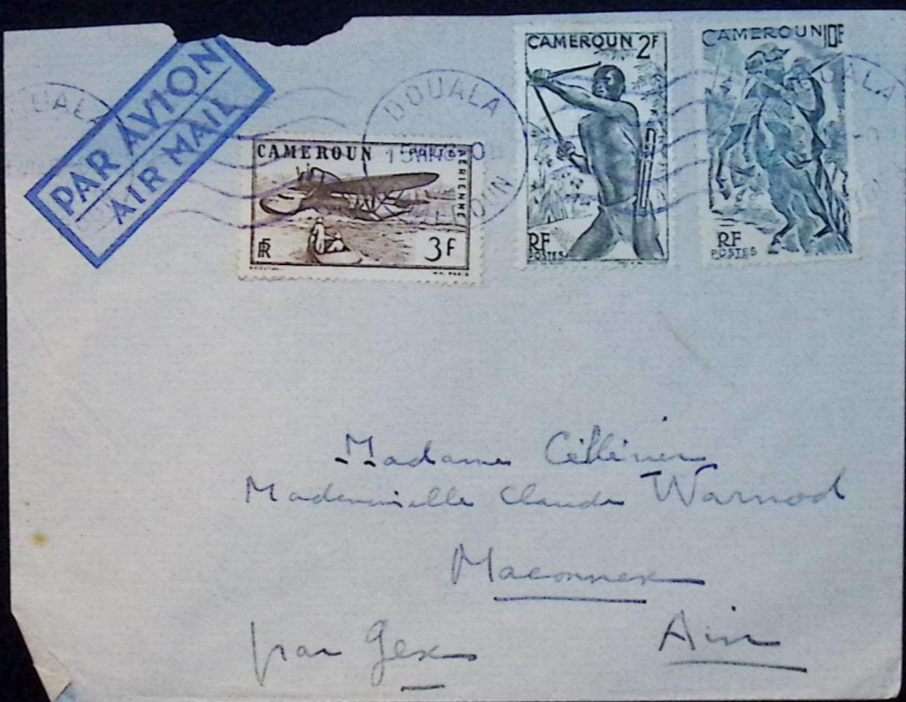 PAR AVION
AIR MAIL
DOUALA
CAMEROUN
POSTE AERIENNE
RF
3F
CAMEROUN 2F
RF
POSTES
CAMEROUN 10F
RF
POSTES
Madame
Mademoiselle Claude Warnod
Maconnex
par Gex
Ain